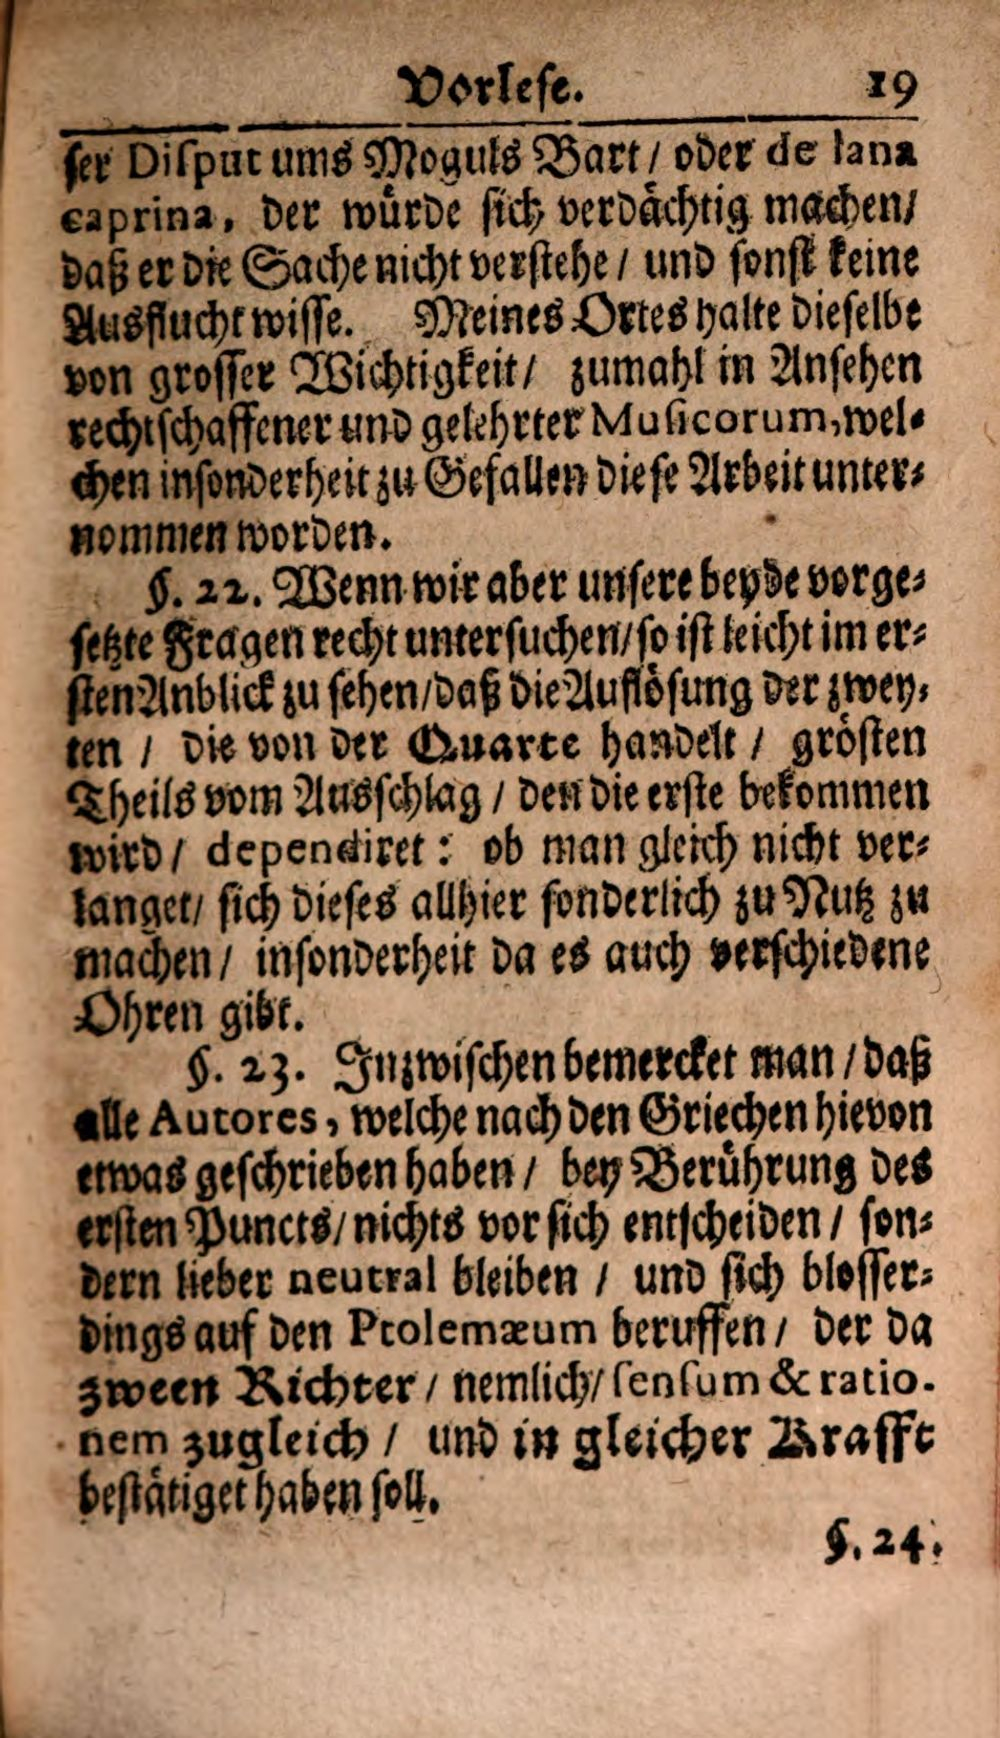 Vorlese. 19
ser Disput ums Moguls Bart / oder de lana
caprina, der würde sich verdächtig machen /
daß er die Sache nicht verstehe / und sonst keine
Ausflucht wisse. Meines Ortes halte dieselbe
von grosser Wichtigkeit / zumahl in Ansehen
rechtschaffener und gelehrter Musicorum, wel-
chen insonderheit zu Gefallen diese Arbeit unter-
nommen worden.
§. 22. Wenn wir aber unsere beyde vorge-
setzte Fragen recht untersuchen / so ist leicht im er-
sten Anblick zu sehen / daß die Auflösung der zwey-
ten / die von der Quarte handelt / grösten
Theils vom Ausschlag / den die erste bekommen
wird / dependiret: ob man gleich nicht ver-
langet / sich dieses allhier sonderlich zu Nutz zu
machen / insonderheit da es auch verschiedene
Ohren gibt.
§. 23. Inzwischen bemercket man / daß
alle Autores, welche nach den Griechen hievon
etwas geschrieben haben / bey Berührung des
ersten Puncts / nichts vor sich entscheiden / son-
dern lieber neutral bleiben / und sich blosser-
dings auf den Ptolemæum beruffen / der da
zween Richter / nemlich / sensum & ratio-
nem zugleich / und in gleicher Krafft
bestätiget haben soll.
§. 24.